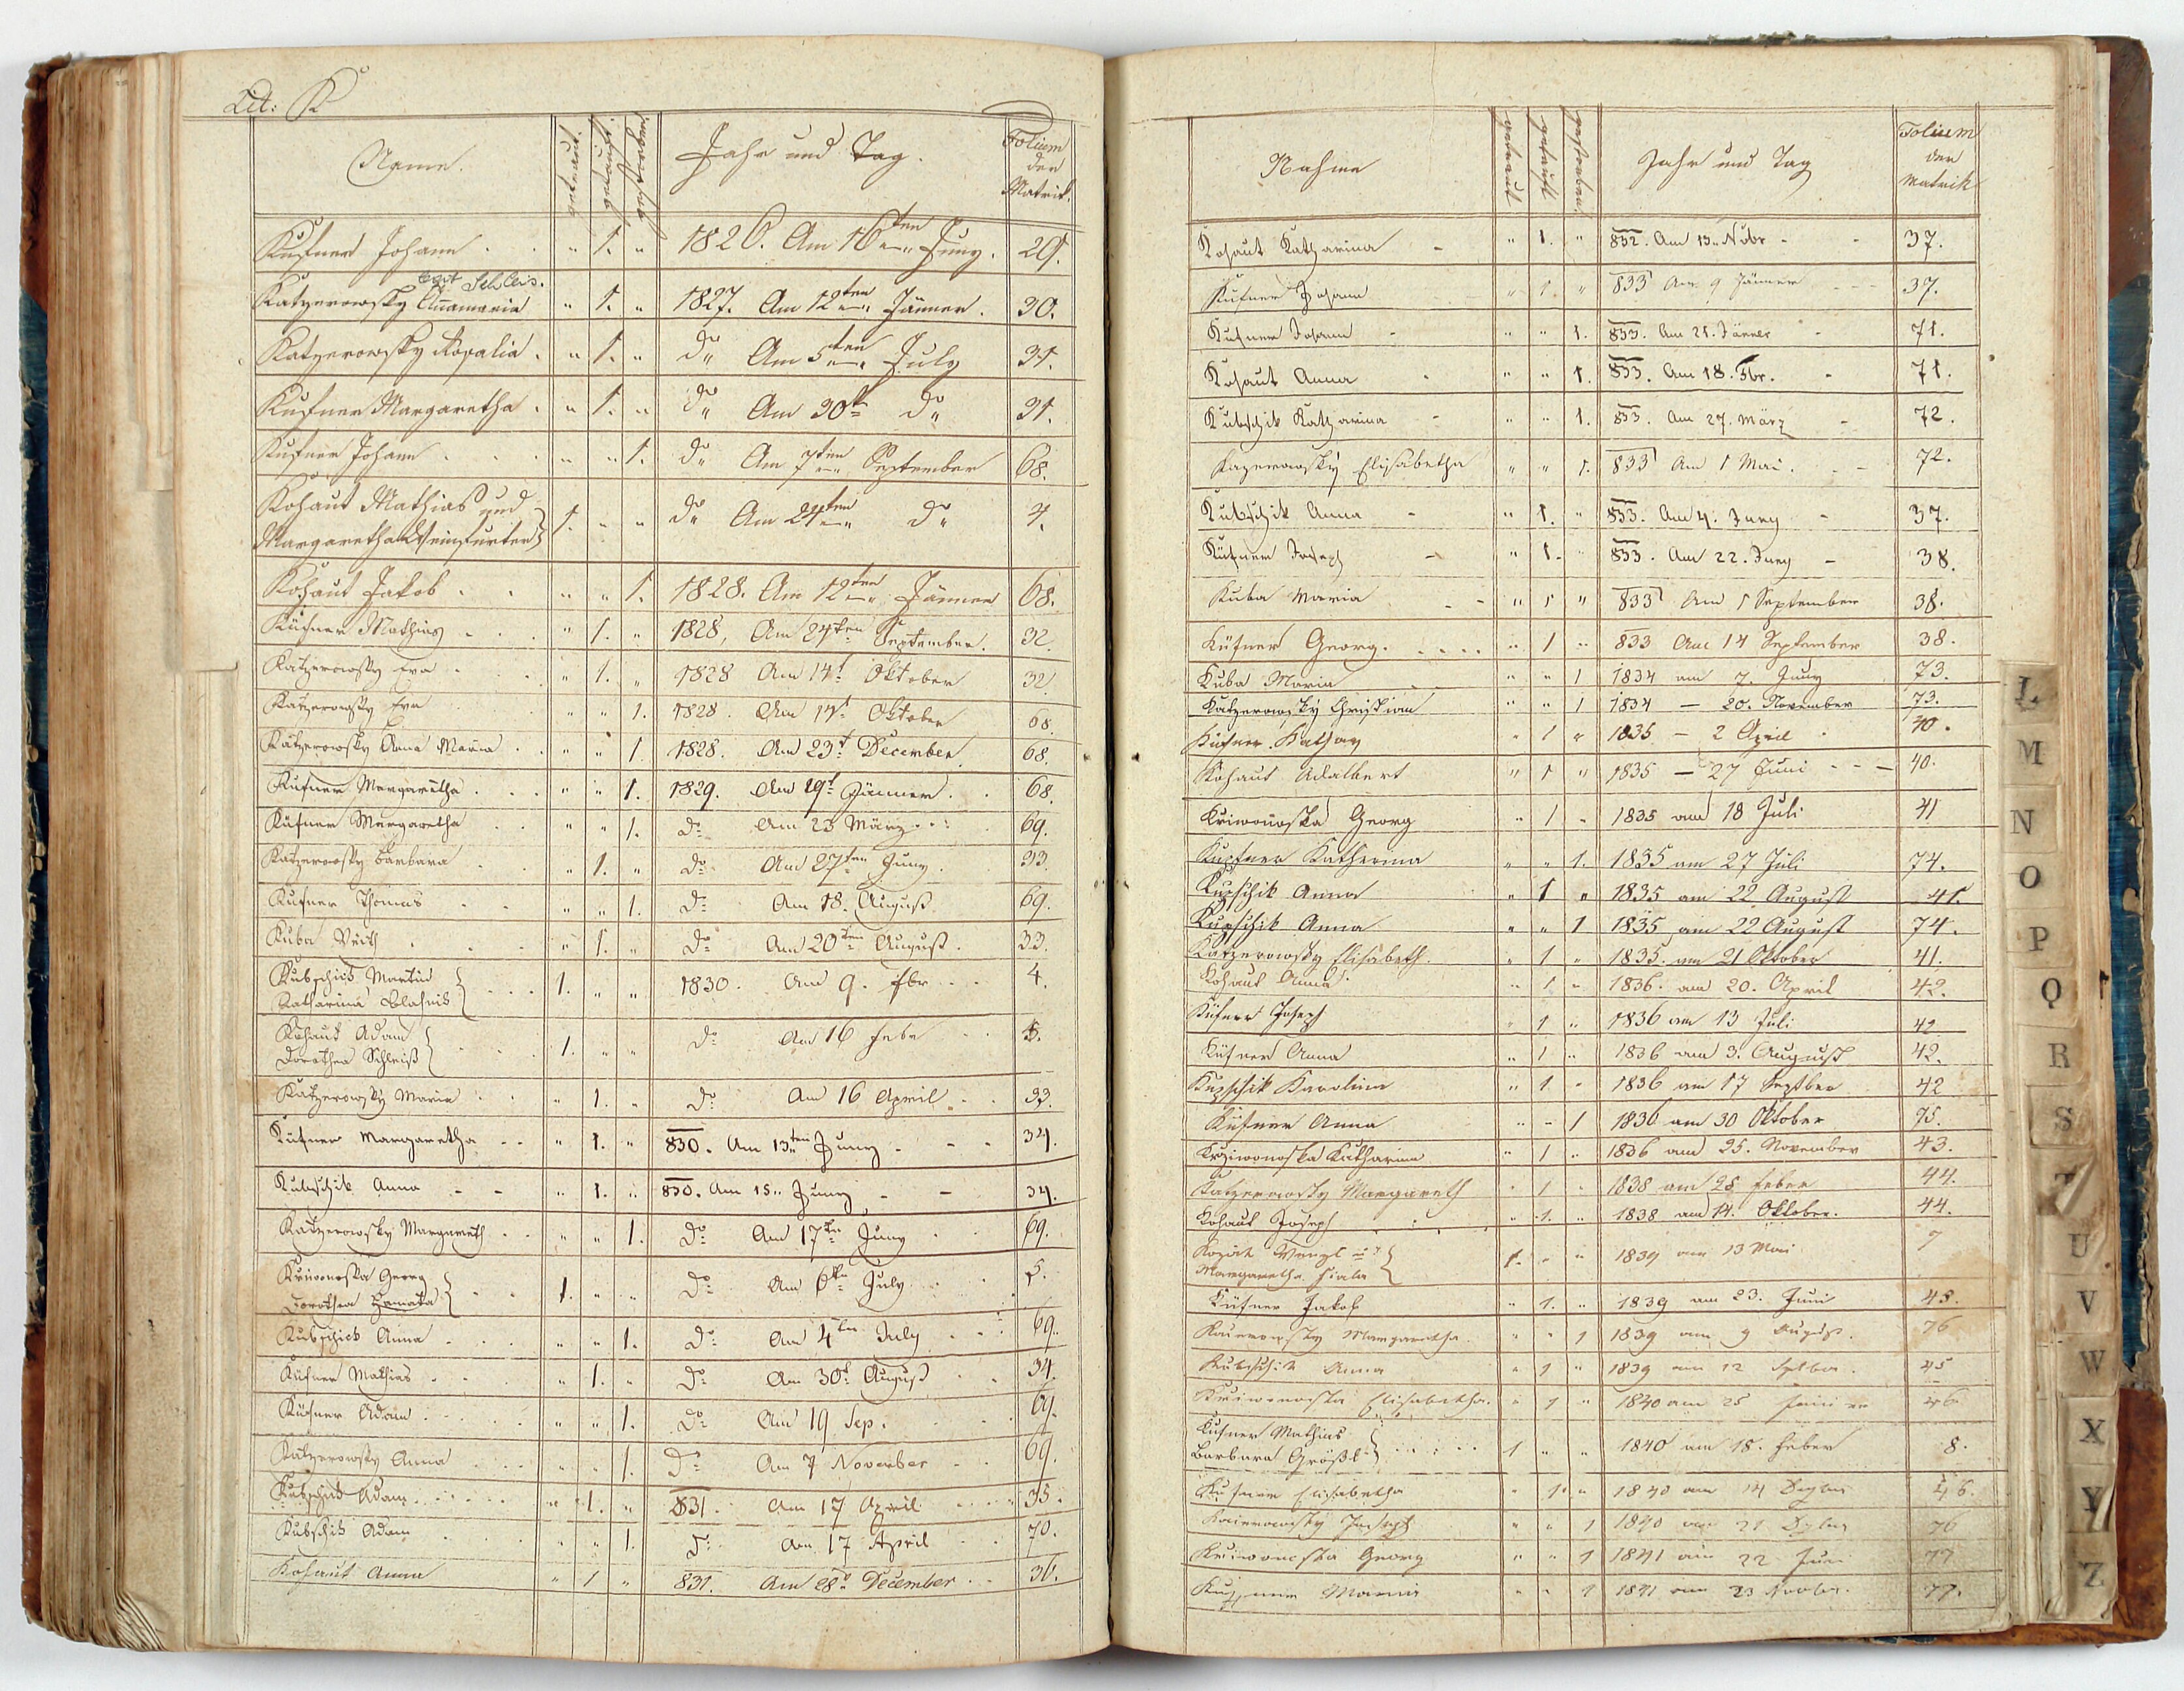 Lit: K
Name.
getraut.
getauft.
gestorben.
Jahr und Tag.
Folium
der
Matrik.
Kufner Johann . . " 1. " 1826. Am 16ten Juny. 29.
Katzerowsky Annamaria " 1. " 1827. Am 12ten Jänner. 30.
Katzerowsky Rosalia. " 1. " do Am 5ten July 31.
Kufner Margaretha . " 1. " do Am 30t do 31.
Kufner Johann . . . " " 1. do Am 7ten September 68.
Kohaut Mathias und
Margaretha Weinfurter } 1. " " do Am 24ten do 4.
Kohaut Jakob . . " " 1. 1828. Am 12ten Jänner 68.
Küfner Mathias . . . " 1. " 1828, Am 24ten September. 32.
Katzerowsky Eva . . " 1. " 1828 Am 14t Oktober 32.
Katzerowsky Eva " " 1. 1828. Am 14t Oktober 68.
Katzerowsky Anna Maria . . " " 1 1828. Am 23t December. 68.
Kufner Margaretha . . . " " 1. 1829. Am 29t Jänner. . 68.
Küfner Margaretha . . " " 1. do Am 23 März . . . 69.
Katzerowsky Barbara . . " 1. " do Am 27ten Juny. 33.
Kufner Thomas - - " " 1. do Am 18. August 69.
Kuba Veith . . . " 1. " do Am 20ten August. 33.
Kubschick Martin
Katharina Blahnik } . . . 1. " " 1830. Am 9. fbr . . . 4.
Kohaut Adam
Dorothea Schleiß } . . . 1. " " do Am 16 Febr . . 5.
Katzerowsky Maria . . " 1. " do Am 16 April . . 33.
Küfner Margaretha - - " 1. " 830. Am 13ten Juny - - 34.
Kubschik Anna - - " 1. " 830. Am 15" Juny - - 34.
Katzerowsky Margareth . . " " 1. do Am 17tn Juny . . 69.
Kriwonoska Georg
Dorothea Hamata } . . 1. " " do Am 6tn July . . 5.
Kubschick Anna . . . " " 1. do Am 4ten July . . . 69.
Küfner Mathias . . . " 1. " do Am 30t August . . 34.
Küfner Adam . . . . " " 1. do Am 19 Sep. . . 69.
Katzerowsky Anna . . . " " 1. do Am 7 November - - 69.
Kubschik Adam . . . . . " 1. " 831. Am 17 April . . . . 35.
Kubschik Adam . " " 1. do Am 17 April . . 70.
Kohaut Anna " 1 " 831. Am 28t December . . 36.
Nahme
getraut
getauft
gestorben.
Jahr und Tag
Folium
der
Matrik
Kohaut Katharina - " 1. " 832. Am 13. Nobr - - 37.
Kufner Johann " 1 " 833 Am 9 Jänner - - - 37.
Kufner Johann - " " 1. 833. Am 21. Jänner - 71.
Kohaut Anna - " " 1. 833. Am 18. Fbr. - 71.
Kubschik Katharina - " " 1. 833. Am 27. März - 72.
Kazerowsky Elisabetha " " 1. 833 Am 1 Mai. . - 72.
Kubschik Anna - " 1. " 833. Am 4. Juny - 37.
Küfner Joseph - " 1. " 833. Am 22. Juny - 38.
Kuba Maria . - - " 1 " 833 Am 1 September 38.
Küfner Georg. . . . . " 1 " 833 Am 14 September 38.
Kuba Maria " " 1 1834 am 7. Juny 73.
Katzerowsky Christian " " 1 1834 — 20. November 73.
Küfner Kathar " 1 " 1835 — 2 April . 40.
Kohaut Adalbert " 1 " 1835 — 27 Juni - - - 40.
Kriwonoska Georg " 1 " 1835 am 18 Juli 41
Kupfner Katherina " " 1. 1835 am 27 Juli 74.
Kupschik Anna " 1 " 1835 am 22 August 41.
Kupschik Anna " " 1 1835 am 22 August 74.
Katzerowsky Elisabeth. " 1 " 1835. am 21 Oktober 41.
Kohaut Anna. " 1 " 1836. am 20. April 42.
Küfner Joseph " 1 " 1836 am 13 Juli 42
Küfner Anna " 1 " 1836 am 3. August 42.
Kupschik Karolina " 1. " 1836 am 17 Septber 42
Küfner Anna " - 1 1836 am 30 Oktober 75.
Krziwonoska Katharina " 1 " 1836 am 25. November 43.
Katzerowsky Margareth " 1 " 1838 am 28 Feber 44.
Kohaut Joseph . . " 1. " 1838 am 14. Oktober. 44.
Wenzl
Margaretha Fiala } 1. " " 1839 am 13 Mai 7
Küfner Jakob " 1. " 1839 am 23. Juni 45.
Margaretha. " " 1 1839 am 9 August. 76
Kubschik Anna " 1 " 1839 am 12 Septber. 45
Kriwonoska Elisabetha. " 1 " 1840 am 25 46
Kufner Mathias
Barbara Größl } . . . . . 1 " " 1840 am 18. Feber 8.
Kufner Elisabetha " 1 " 1840 am 14 46.
Joseph " " 1 1840 am 21 76
Kriwonoska Georg " " 1 1841 am 22 Juni 77
Maria " " 1 1841 am 23 77.
L
M
N
O
P
Q
R
S
T
U
V
W
X
Y
Z